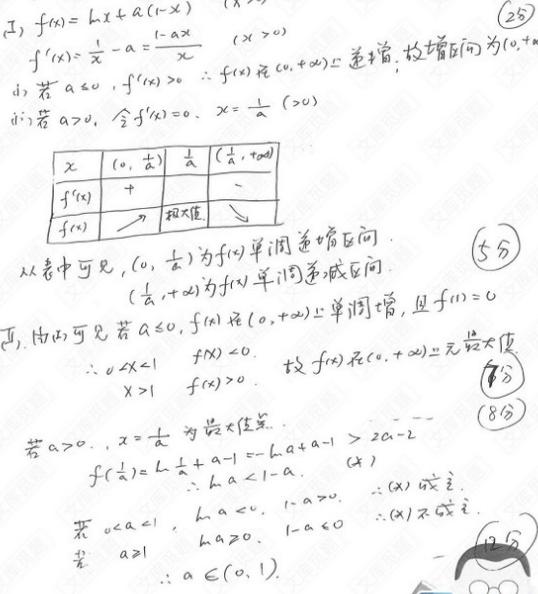 I) f(x) = ln x + a(1-x) (x>
(2分)
f'(x) = 1/x - a = (1-ax)/x (x>0)
i) 若 a≤0, f'(x)>0 ∴ f(x)在(0,+∞)上递增, 故增区间为(0,+∞
ii) 若 a>0, 令f'(x)=0. x = 1/a (>0)
x (0, 1/a) 1/a (1/a, +∞)
f'(x) + -
f(x) ↗ 极大值 ↘
从表中可见, (0, 1/a)为f(x)单调递增区间.
(5分)
(1/a, +∞)为f(x)单调递减区间.
II). 由(I)可见若 a≤0, f(x)在(0,+∞)上单调增, 且f(1)=0
∴ 0<x<1 f(x)<0.
x>1 f(x)>0. 故f(x)在(0,+∞)上无最大值
(7分)
(8分)
若 a>0., x = 1/a 为最大值点.
f(1/a) = ln 1/a + a-1 = -ln a + a-1 > 2a-2
∴ ln a < 1-a. (*)
若 0<a<1, ln a<0, 1-a>0. ∴(*)成立.
若 a≥1 ln a≥0. 1-a≤0 ∴(*)不成立.
(12分)
∴ a∈(0,1).